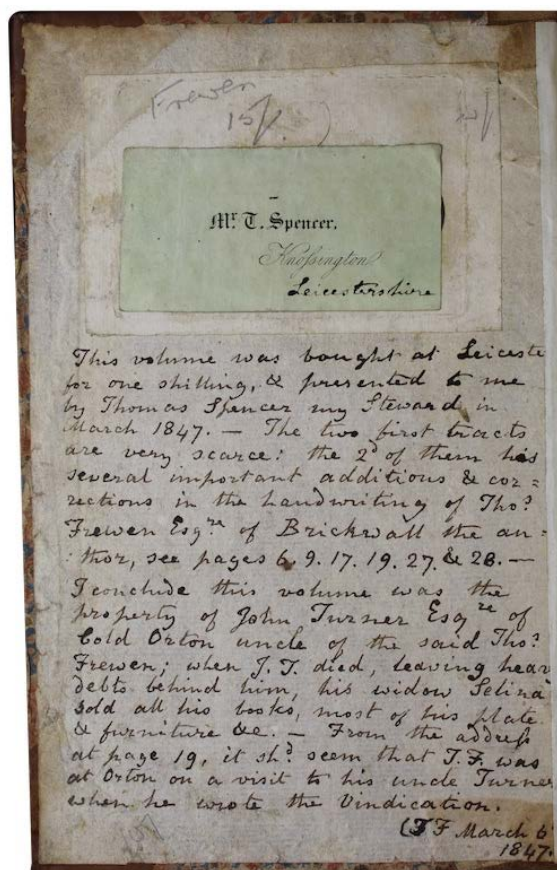 Frewen
15/
Mr. T. Spencer.
Knossington
Leicestershire
This volume was bought at Leiceste
for one shilling, & presented to me
by Thomas Spencer my Steward in
March 1847. — The two first tracts
are very scarce: the 2d of them has
several important additions & cor=
rections in the handwriting of Thos
Frewen Esqre of Brickwall the au=
:thor, see pages 6. 9. 17. 19. 27. & 28. —
I conclude this volume was the
property of John Turner Esqre of
Cold Orton uncle of the said Thos
Frewen; when J. T. died, leaving heav
debts behind him, his widow Selina
sold all his books, most of his plate
& furniture &c. — From the address
at page 19, it shd seem that T. F. was
at Orton on a visit to his uncle Turner
when he wrote the Vindication.
(TF March 6
1847.